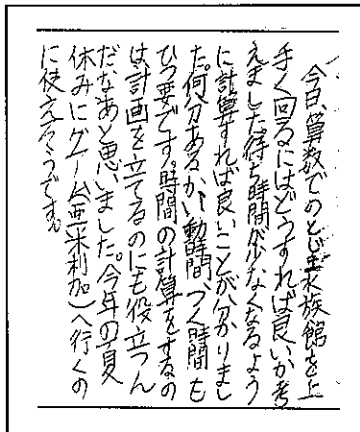 今日、算数でのとじま水族館を上
手く回るにはどうすれば良いか考
えました。待ち時間が少なくなるよう
に計算すれば良いことが分かりまし
た。何分あるか、い動時間、つく時間も
ひつ要です。時間の計算をするの
は計画を立てるのにも役立つん
だなあと思いました。今年の夏
休みにグアム(亜米利加)へ行くの
に使えそうです。